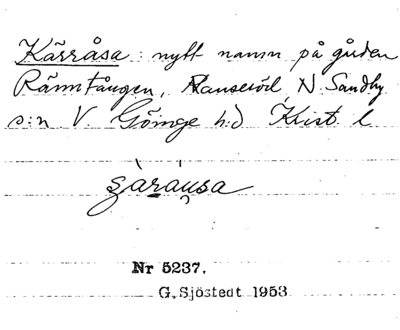 Kärråsa : nytt namn på gården
Rännfången, Ranseröd, N. Sandby
s:n V. Göinge h:d Krist. l.
Nr 5237.
G. Sjöstedt 1953